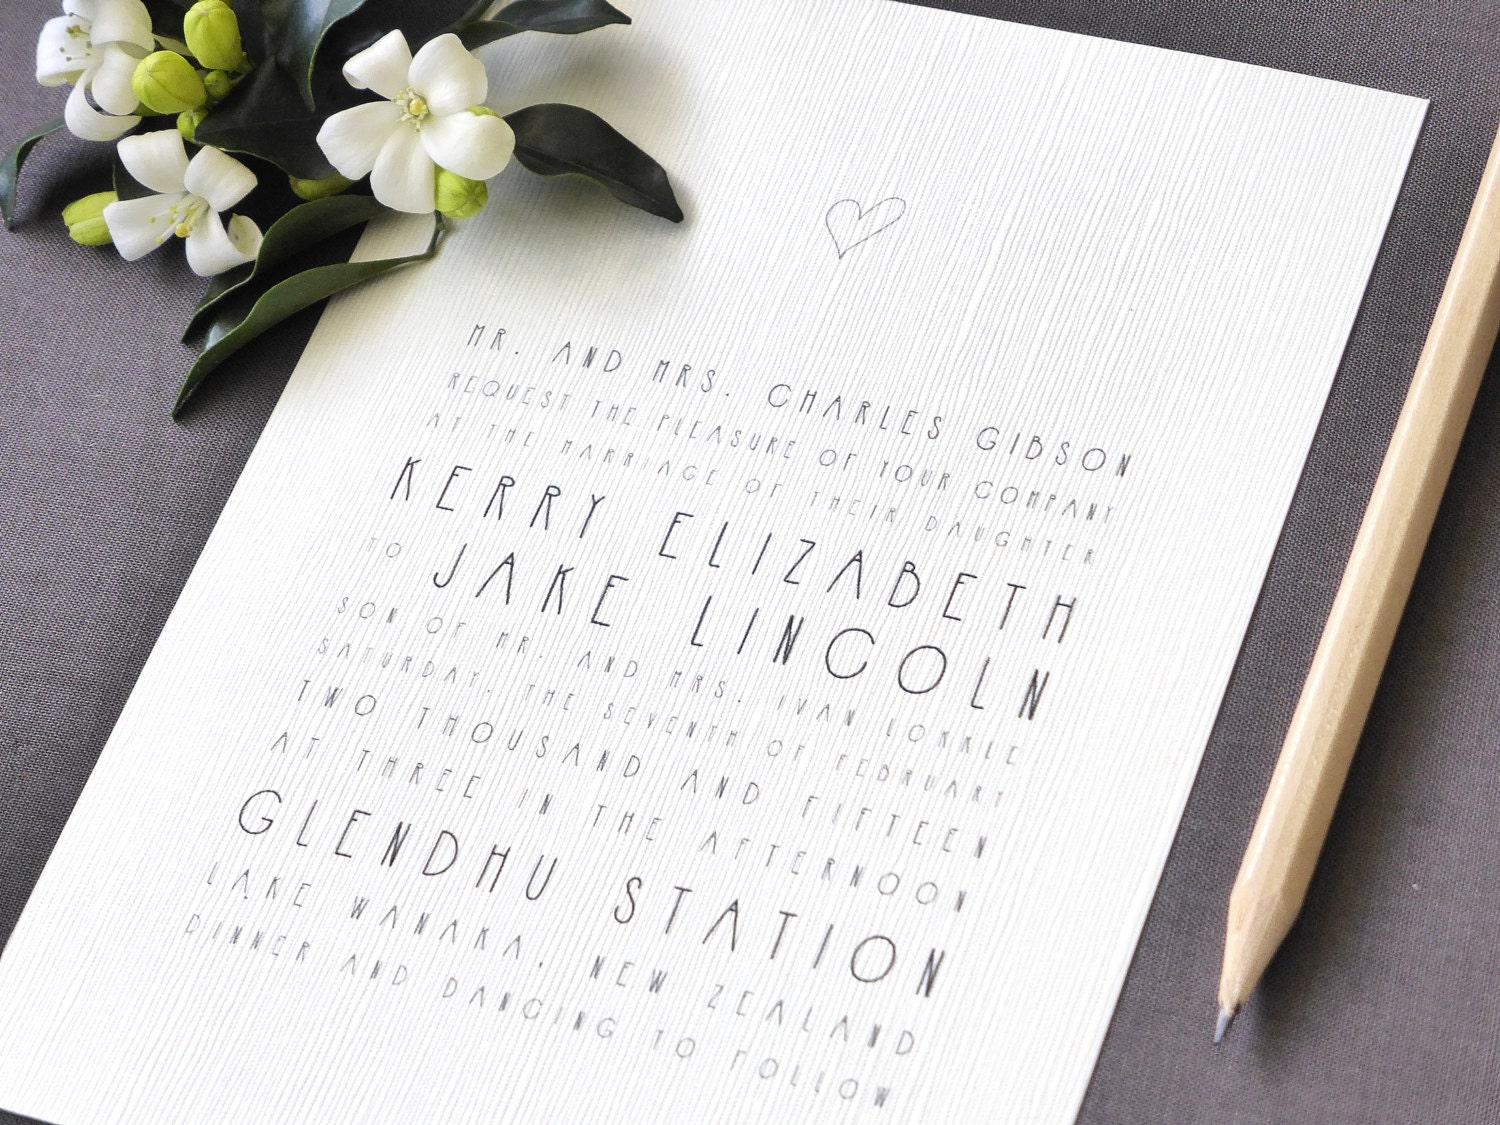 MR. AND MRS. CHARLES GIBSON
REQUEST THE PLEASURE OF YOUR COMPANY
AT THE MARRIAGE OF THEIR DAUGHTER
KERRY ELIZABETH
TO JAKE LINCOLN
SON OF MR. AND MRS. IVAN LOKKLE
SATURDAY, THE SEVENTH OF FEBRUARY
TWO THOUSAND AND FIFTEEN
AT THREE IN THE AFTERNOON
GLENDHU STATION
LAKE WANAKA, NEW ZEALAND
DINNER AND DANCING TO FOLLOW